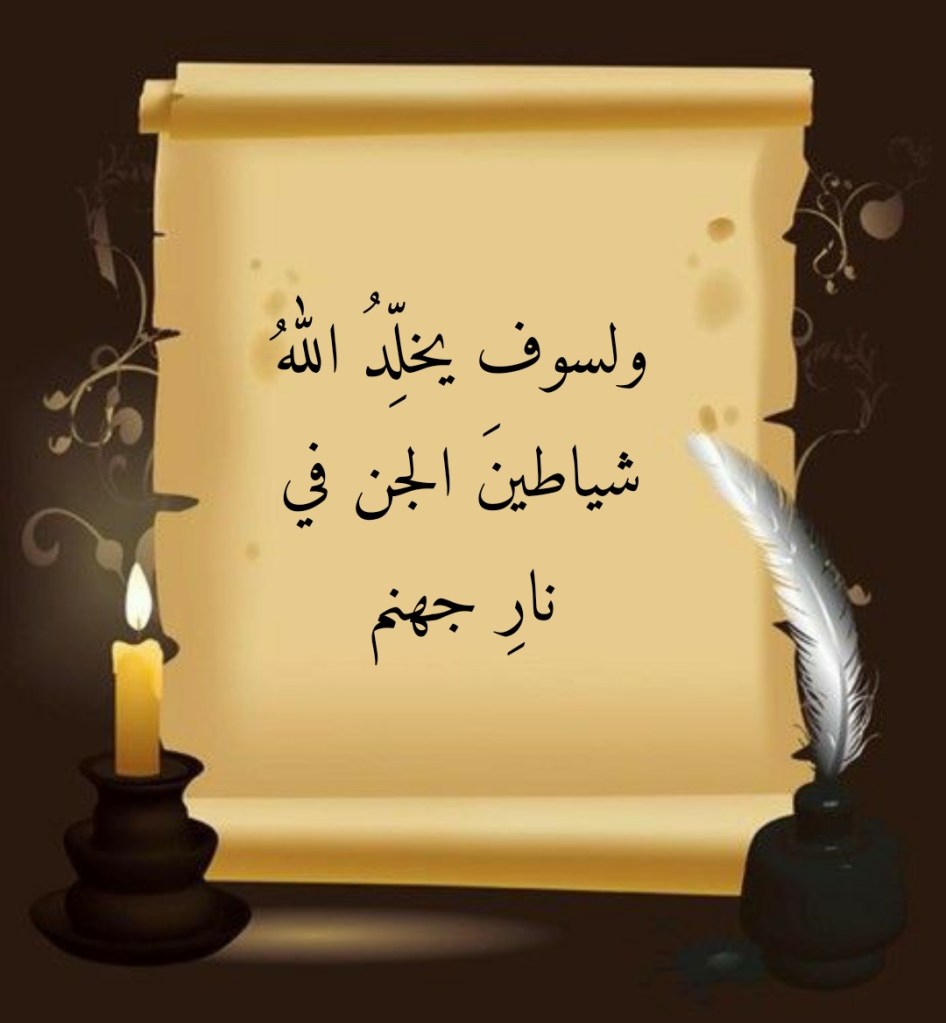 ولسوف يخلِّدُ اللهُ
شياطينَ الجن في
نارِ جهنم